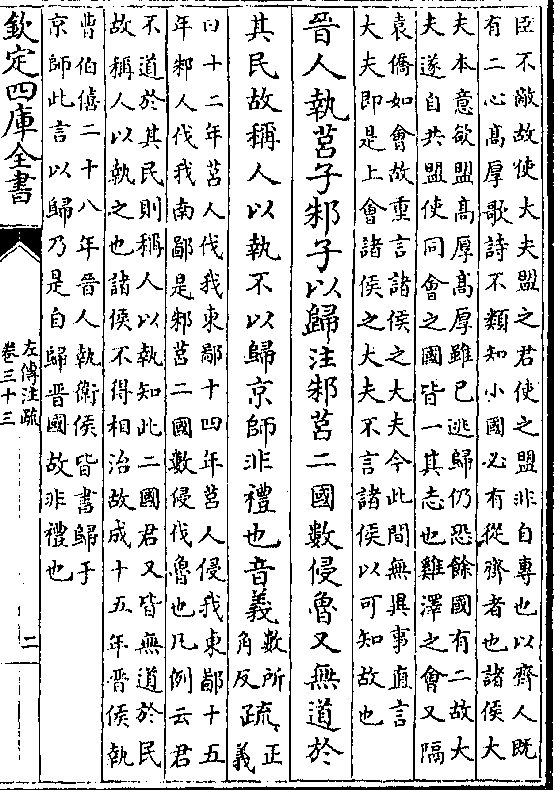 臣不敵故使大夫盟之君使之盟非自專也以齊人既
有二心髙厚歌詩不類知小國必有從齊者也諸侯大
夫本意欲盟髙厚髙厚雖已逃歸仍恐餘國有二故大
夫遂自共盟使同會之國皆一其志也雞澤之會又隔
袁僑如會故重言諸侯之大夫今此間無異事直言
大夫即是上會諸侯之大夫不言諸侯以可知故也
晉人執莒子邾子以歸注邾莒二國數侵魯又無道於
其民故稱人以執不以歸京師非禮也音義數所角反疏正義
曰十二年莒人伐我東鄙十四年莒人侵我東鄙十五
年邾人伐我南鄙是邾莒二國數侵伐魯也凡例云君
不道於其民則稱人以執知此二國君又皆無道於民
故稱人以執之也諸侯不得相治故成十五年晉侯執
曹伯僖二十八年晉人執衛侯皆書歸于
京師此言以歸乃是自歸晉國故非禮也
欽定四庫全書
左傳注疏
卷三十三
二